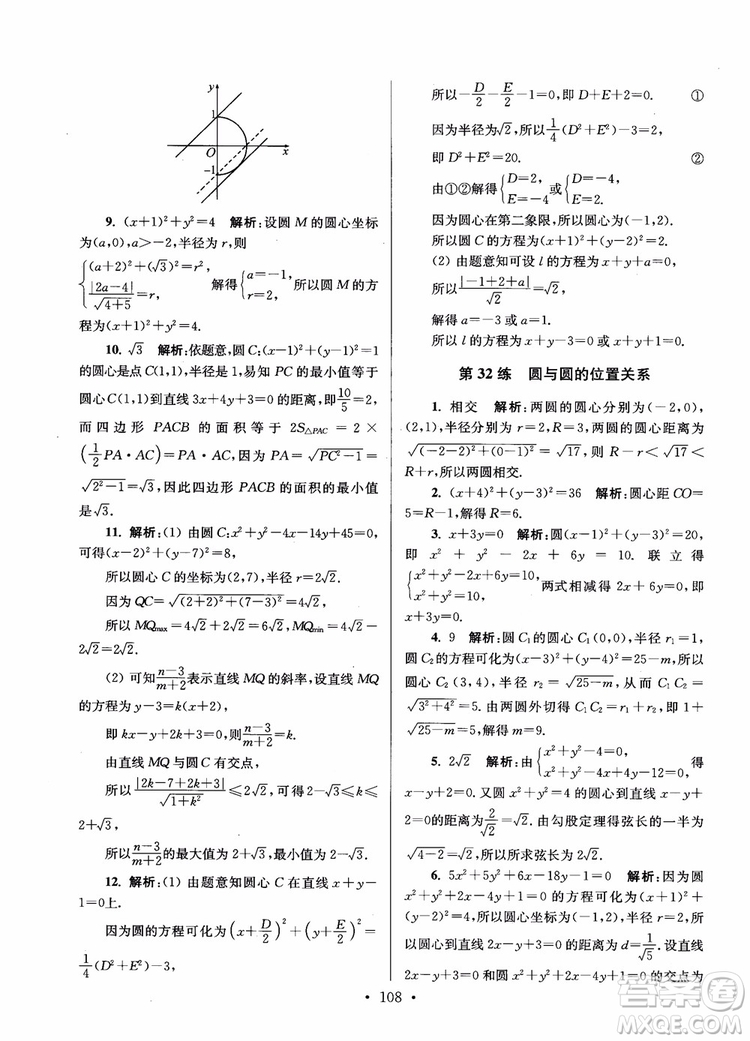 y
1
O
x
−1
9. (x+1)²+y²=4 解析:设圆 M 的圆心坐标
为(a,0),a>−2,半径为 r,则
{(a+2)²+(√3)²=r², |2a−4|/√(4+5)=r, 解得{a=−1, r=2, 所以圆 M 的方
程为(x+1)²+y²=4.
10. √3 解析:依题意,圆 C:(x−1)²+(y−1)²=1
的圆心是点 C(1,1),半径是 1,易知 PC 的最小值等于
圆心 C(1,1)到直线 3x+4y+3=0 的距离,即10/5=2,
而四边形 PACB 的面积等于 2S△PAC = 2 ×
(1/2 PA · AC) = PA · AC = PA = √(PC²−1) =
√(2²−1)=√3,因此四边形 PACB 的面积的最小值是
√3.
11. 解析:(1) 由圆 C:x²+y²−4x−14y+45=0,
可得(x−2)²+(y−7)²=8,
所以圆心 C 的坐标为(2,7),半径 r=2√2.
因为 QC=√((2+2)²+(7−3)²)=4√2,
所以 MQmax=4√2+2√2=6√2,MQmin=4√2−
2√2=2√2.
(2) 可知(n−3)/(m+2)表示直线 MQ 的斜率,设直线 MQ
的方程为 y−3=k(x+2),
即 kx−y+2k+3=0,则(n−3)/(m+2)=k.
由直线 MQ 与圆 C 有交点,
所以|2k−7+2k+3|/√(1+k²)≤2√2,可得 2−√3≤k≤
2+√3,
所以(n−3)/(m+2)的最大值为 2+√3,最小值为 2−√3.
12. 解析:(1) 由题意知圆心 C 在直线 x+y−
1=0上.
因为圆的方程可化为(x+D/2)²+(y+E/2)²=
1/4(D²+E²)−3,
所以−D/2−E/2−1=0,即 D+E+2=0. ①
因为半径为√2,所以1/4(D²+E²)−3=2,
即 D²+E²=20. ②
由①②解得{D=2, E=−4或{D=−4, E=2.
因为圆心在第二象限,所以圆心为(−1,2).
所以圆 C 的方程为(x+1)²+(y−2)²=2.
(2) 由题意知可设 l 的方程为 x+y+a=0,
所以|−1+2+a|/√2=√2,
解得 a=−3 或 a=1,
所以 l 的方程为 x+y−3=0 或 x+y+1=0.
第 32 练 圆与圆的位置关系
1. 相交 解析:两圆的圆心分别为(−2,0),
(2,1),半径分别为 r=2,R=3,两圆的圆心距离为
√((−2−2)²+(0−1)²)=√17,则 R−r<√17<
R+r,所以两圆相交.
2. (x+4)²+(y−3)²=36 解析:圆心距 CO=
5=R−1,故 R=6.
3. x+3y=0 解析:圆(x−1)²+(y−3)²=20,
即 x² + y² − 2x − 6y = 10. 联立得
{x²+y²−2x−6y=10, x²+y²=10, 两式相减得 2x+6y=0,即
x+3y=0.
4. 9 解析:圆 C₁ 的圆心 C₁(0,0),半径 r₁=1,
圆 C₂ 的方程可化为(x−3)²+(y−4)²=25−m,所以
圆心 C₂(3,4),半径 r₂=√(25−m).从而 C₁C₂=
√(3²+4²)=5.由两圆外切得 C₁C₂=r₁+r₂,即 1+
√(25−m)=5,解得 m=9.
5. 2√2 解析:由{x²+y²−4=0, x²+y²−4x+4y−12=0, 得
x−y+2=0.又圆 x²+y²=4 的圆心到直线 x−y+
2=0的距离为2/√2=√2.由勾股定理得弦长的一半为
√(4−2)=√2,所以所求弦长为 2√2.
6. 5x²+5y²+6x−18y−1=0 解析:因为圆
x²+y²+2x−4y+1=0 的方程可化为(x+1)²+
(y−2)²=4,所以圆心坐标为(−1,2),半径为 2,所以
圆心到直线 2x−y+3=0 的距离为 d=1/√5.设直线
2x−y+3=0 和圆 x²+y²+2x−4y+1=0 的交点为
· 108 ·
答案圈
MXQE.COM